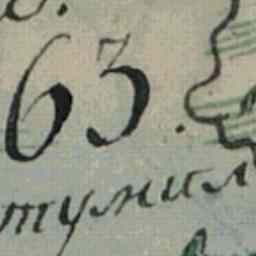 63.
тумил